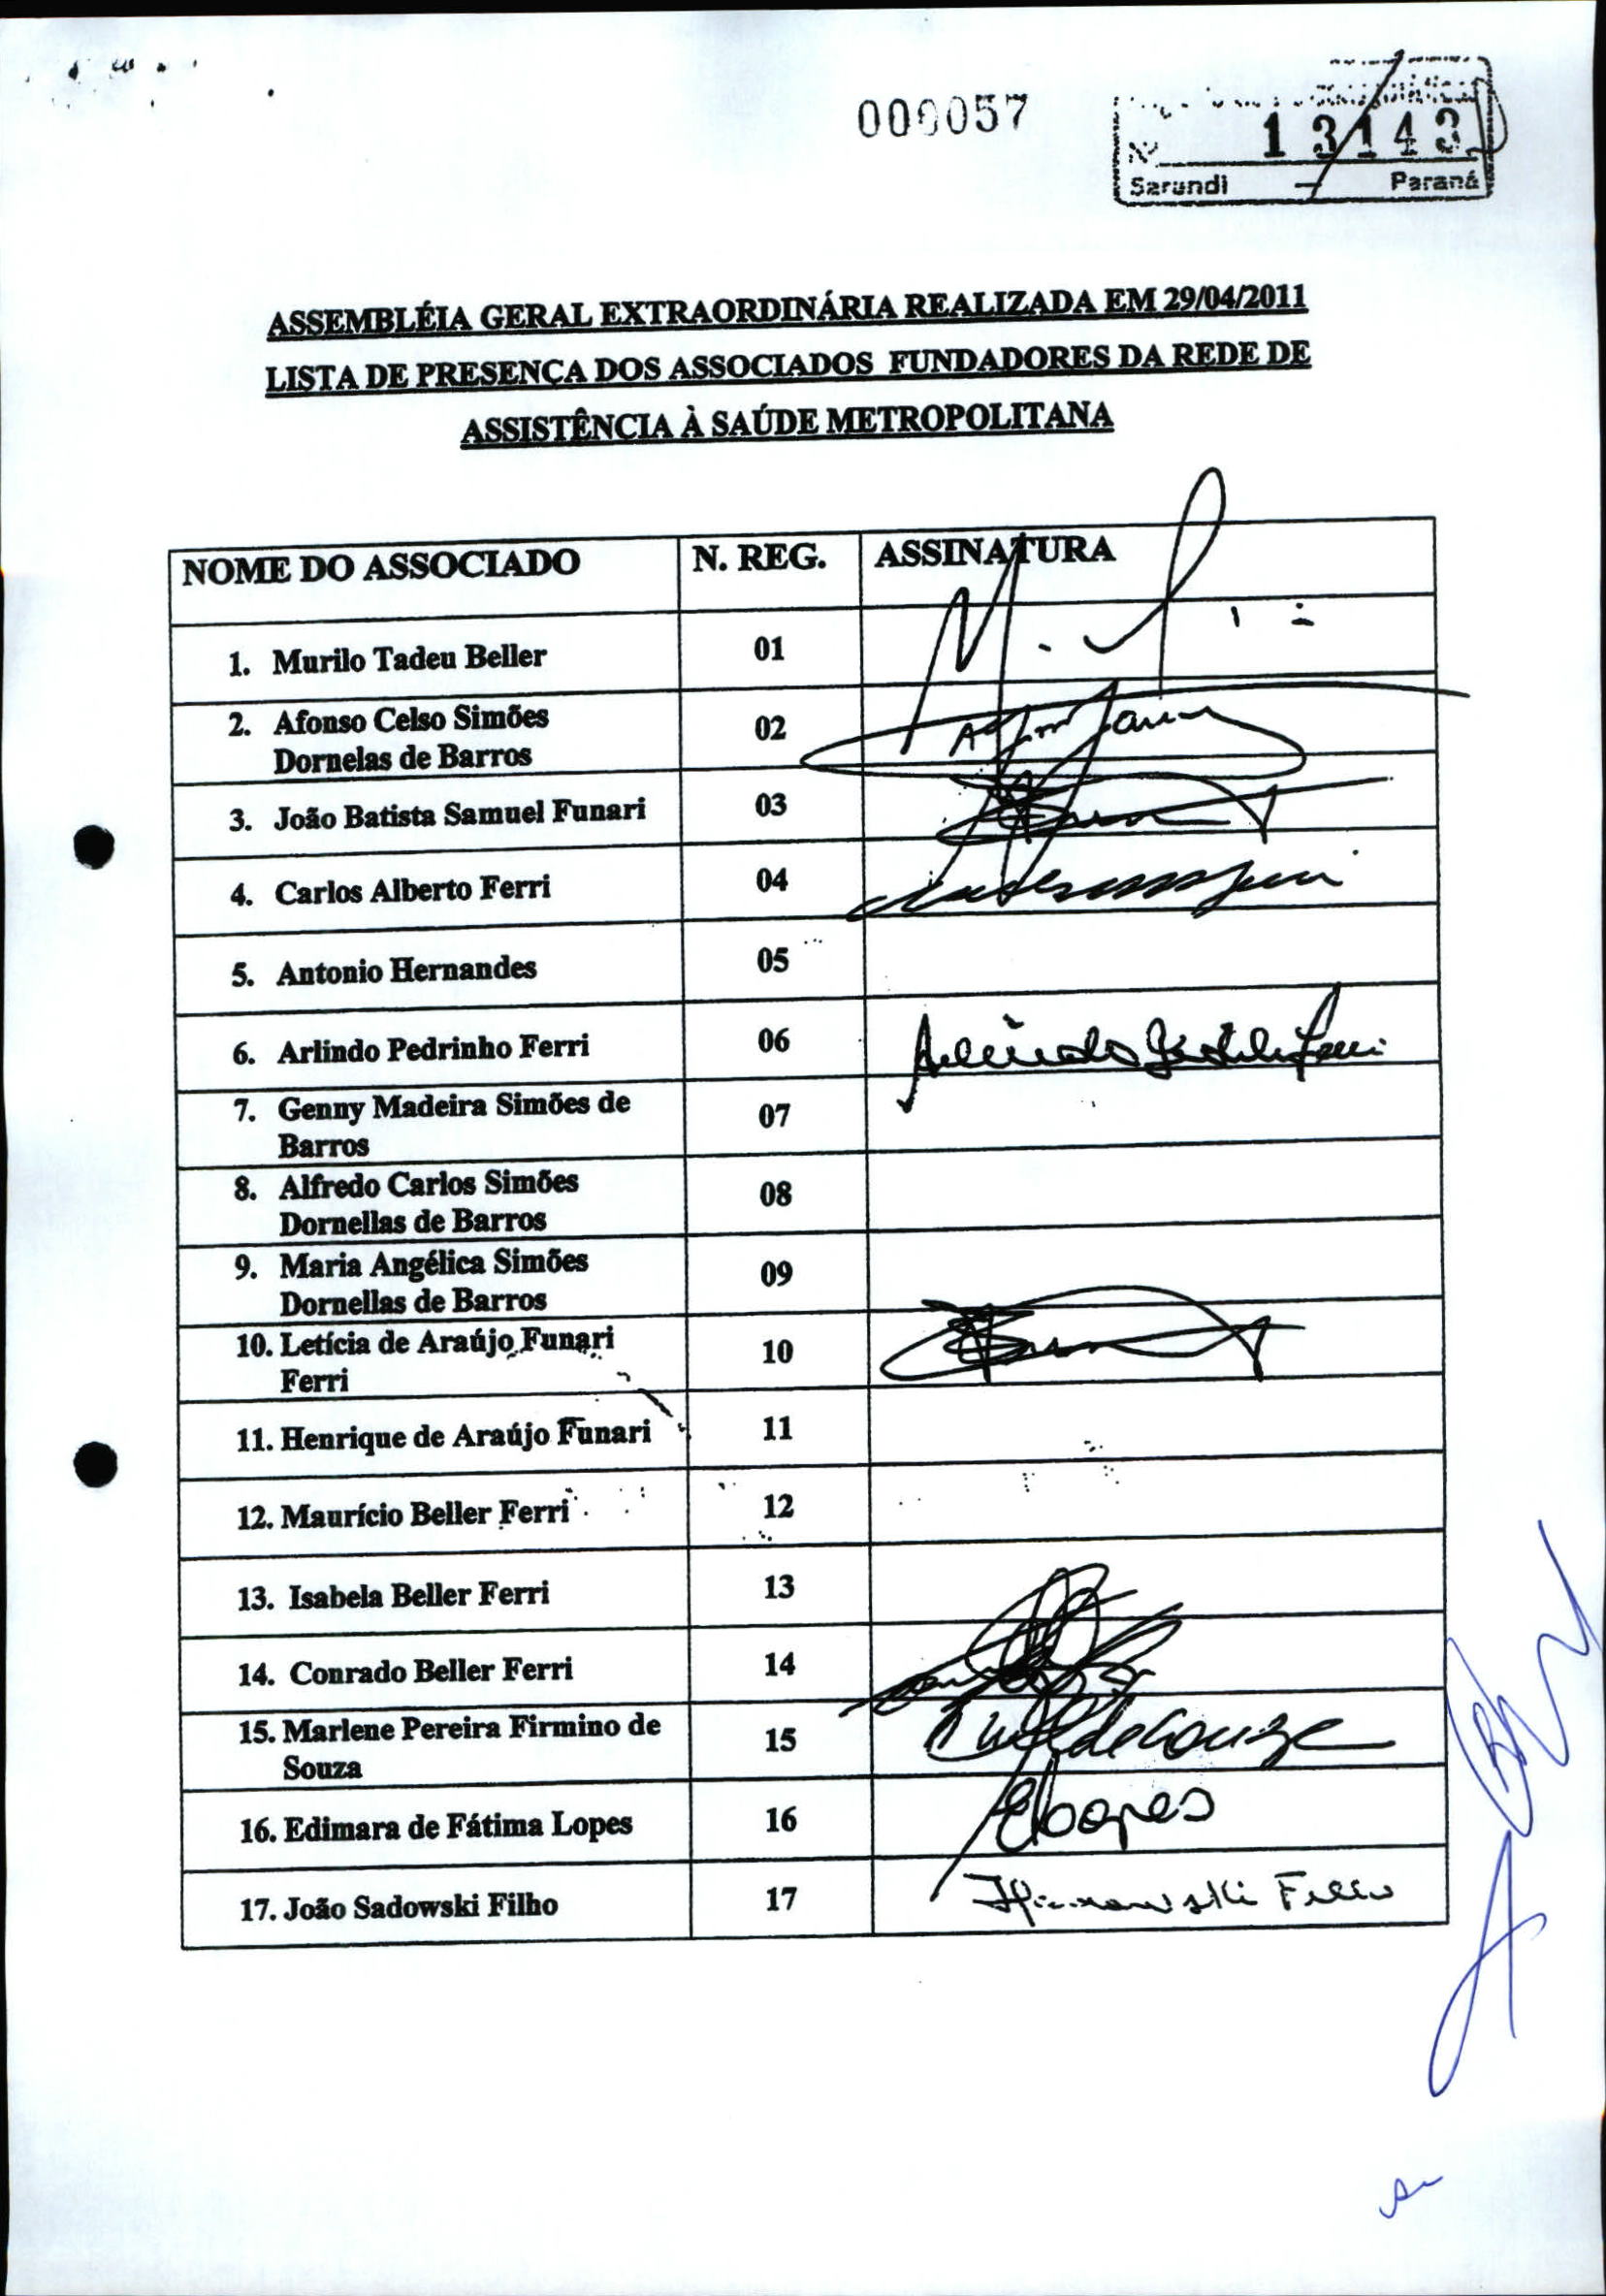 000057
13143
Nº
Sarandi — Paraná
ASSEMBLÉIA GERAL EXTRAORDINÁRIA REALIZADA EM 29/04/2011
LISTA DE PRESENÇA DOS ASSOCIADOS FUNDADORES DA REDE DE
ASSISTÊNCIA À SAÚDE METROPOLITANA
NOME DO ASSOCIADO N. REG. ASSINATURA
1. Murilo Tadeu Beller 01
2. Afonso Celso Simões
Dornelas de Barros 02
3. João Batista Samuel Funari 03
4. Carlos Alberto Ferri 04
5. Antonio Hernandes 05
6. Arlindo Pedrinho Ferri 06
7. Genny Madeira Simões de
Barros 07
8. Alfredo Carlos Simões
Dornellas de Barros 08
9. Maria Angélica Simões
Dornellas de Barros 09
10. Letícia de Araújo Funari
Ferri 10
11. Henrique de Araújo Funari 11
12. Maurício Beller Ferri 12
13. Isabela Beller Ferri 13
14. Conrado Beller Ferri 14
15. Marlene Pereira Firmino de
Souza 15
16. Edimara de Fátima Lopes 16 ELopes
17. João Sadowski Filho 17